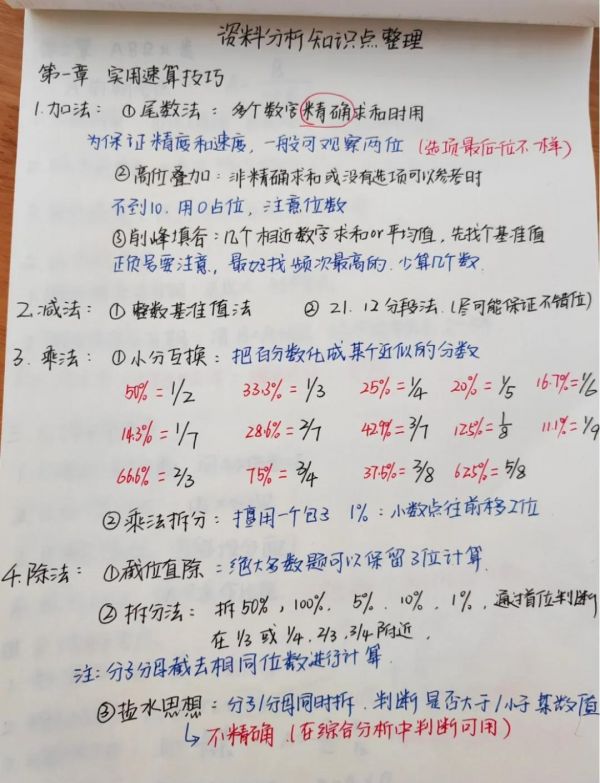 资料分析知识点整理
第一章 实用速算技巧
1.加法：①尾数法：多个数字精确求和时用
为保证精度和速度，一般可观察两位（选项最后一位不一样）
②高位叠加：非精确求和或没有选项可以参考时
不到10，用0占位，注意位数
③削峰填谷：几个相近数字求和or平均值，先找个基准值
正负号要注意，最好找频次最高的，少算几个数.
2.减法：①整数基准值法 ②21.12分段法.(尽可能保证不错位)
3.乘法：①小分互换：把百分数化成某个近似的分数
50%=1/2 33.3%=1/3 25%=1/4 20%=1/5 16.7%=1/6
14.3%=1/7 28.6%=2/7 42.9%=3/7 12.5%=1/8 11.1%=1/9
66.6%=2/3 75%=3/4 37.5%=3/8 62.5%=5/8
②乘法拆分：擅用一个包子 1%：小数点往前移2位
4.除法：①截位直除：绝大多数题可以保留3位计算.
②拆分法：拆50%，100%. 5%. 10%. 1%，通过首位判断
在1/3或1/4，2/3，3/4附近.
注：分子分母截去相同位数进行计算.
③盐水思想：分子/分母同时拆.判断是否大于/小于某数值
↳不精确（在综合分析中判断可用）